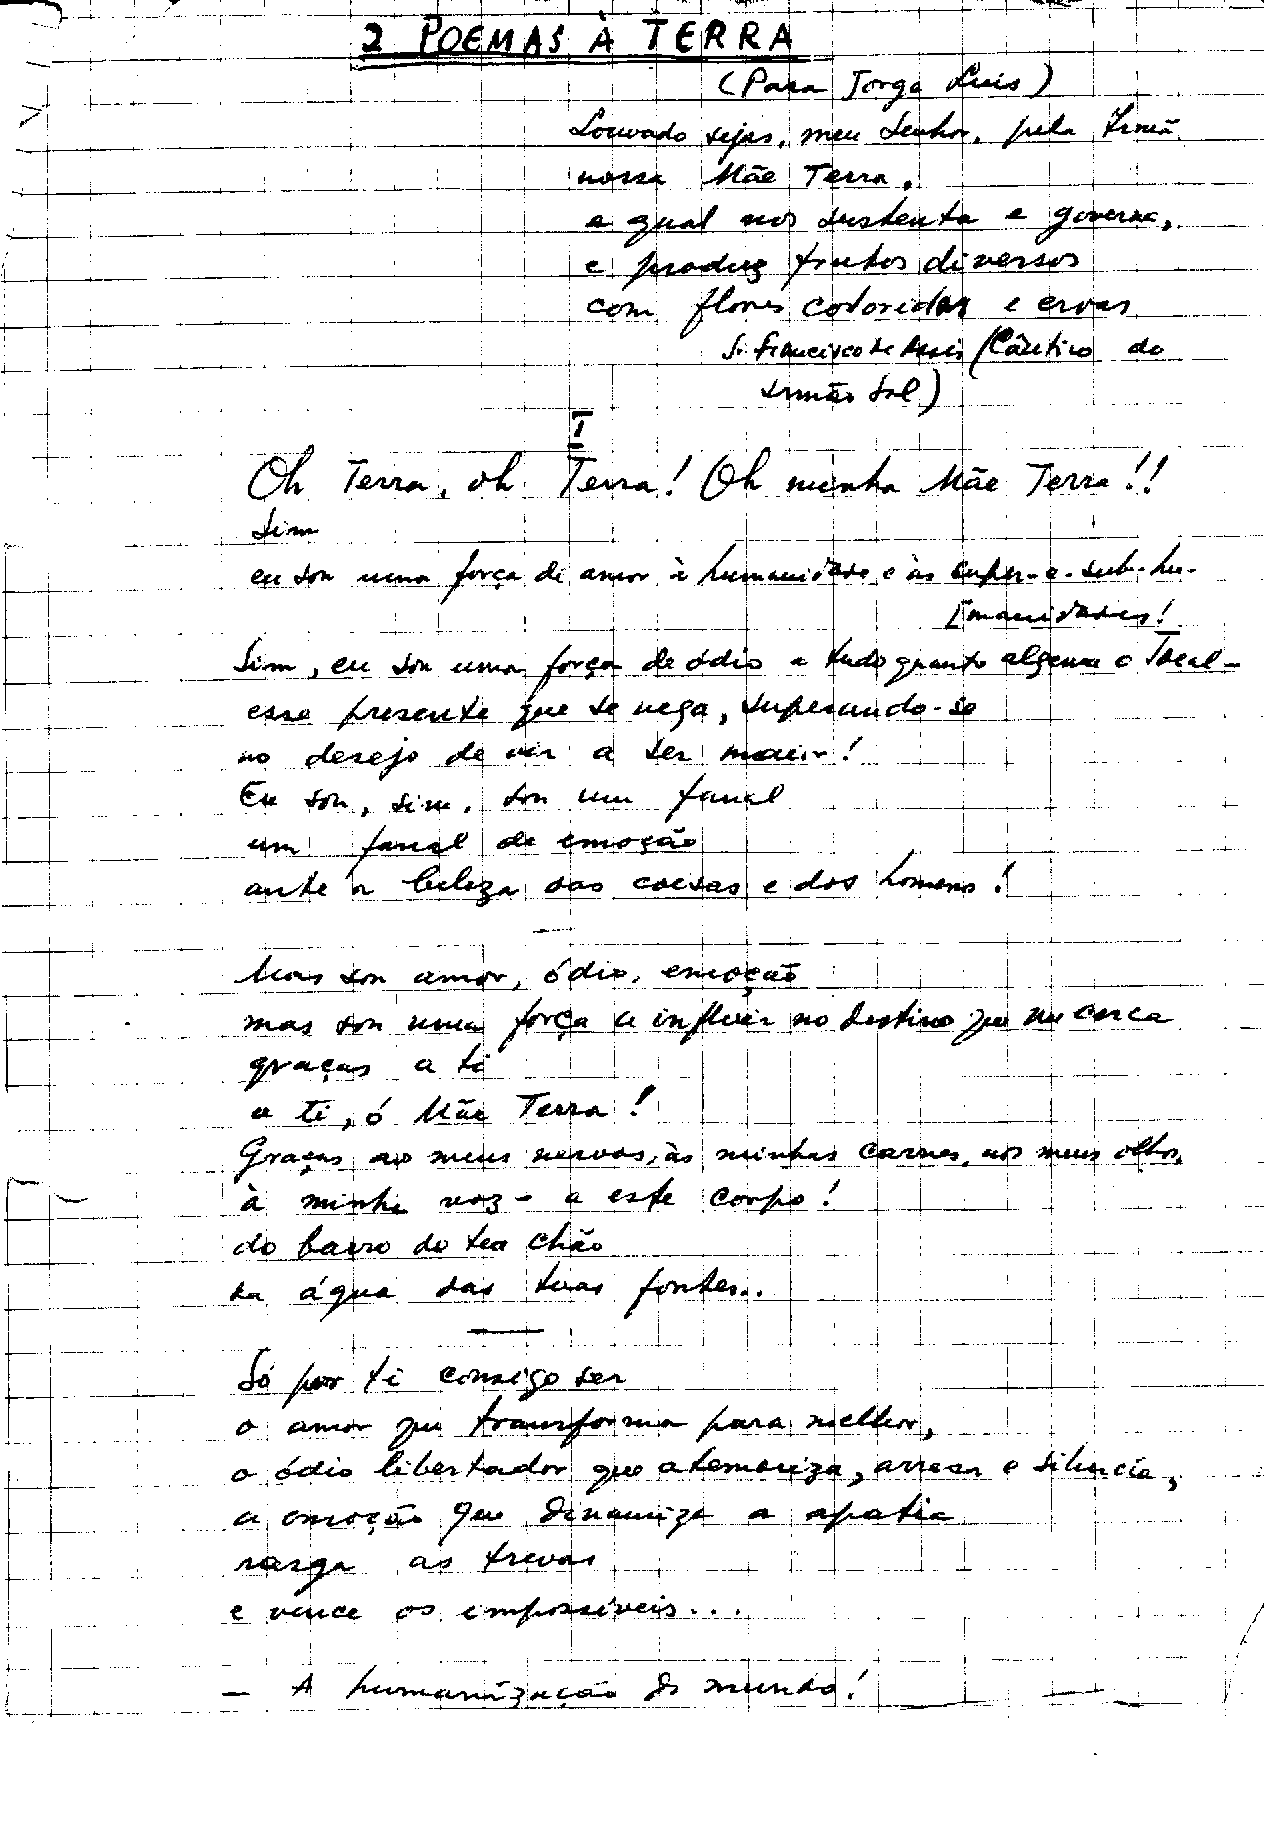 2 POEMAS À TERRA
(Para Jorge Luis)
Louvado sejas, meu Senhor, pela Irmã
nossa Mãe Terra,
a qual nos sustenta e governa,
e produz frutos diversos
com flores coloridas e ervas
S. Francisco de Assis (Cântico do
Irmão Sol)
I
Oh Terra, oh Terra! Oh minha Mãe Terra!!
Sim
eu sou uma força de amor à humanidade e às super-e-sub-hu-
[manidades!
Sim, eu sou uma força de ódio a tudo quanto algema o Ideal-
esse presente que se nega, superando-se
no desejo de vir a ser maior!
Eu sou, sim, sou um fanal
um fanal de emoção
ante a beleza das coisas e dos homens!
Mas sou amor, ódio, emoção
mas sou uma força a influir no destino que me cerca
graças a ti
a ti, ó Mãe Terra!
Graças aos meus nervos, às minhas carnes, aos meus olhos,
à minha voz - a este corpo!
do barro do teu chão
da água das tuas fontes...
Só por ti consigo ser
o amor que transforma para melhor,
o ódio libertador que atemoriza, arrasa e silencia,
a emoção que dinamiza a apatia
rasga as trevas
e vence os impossíveis...
- A humanização do mundo!